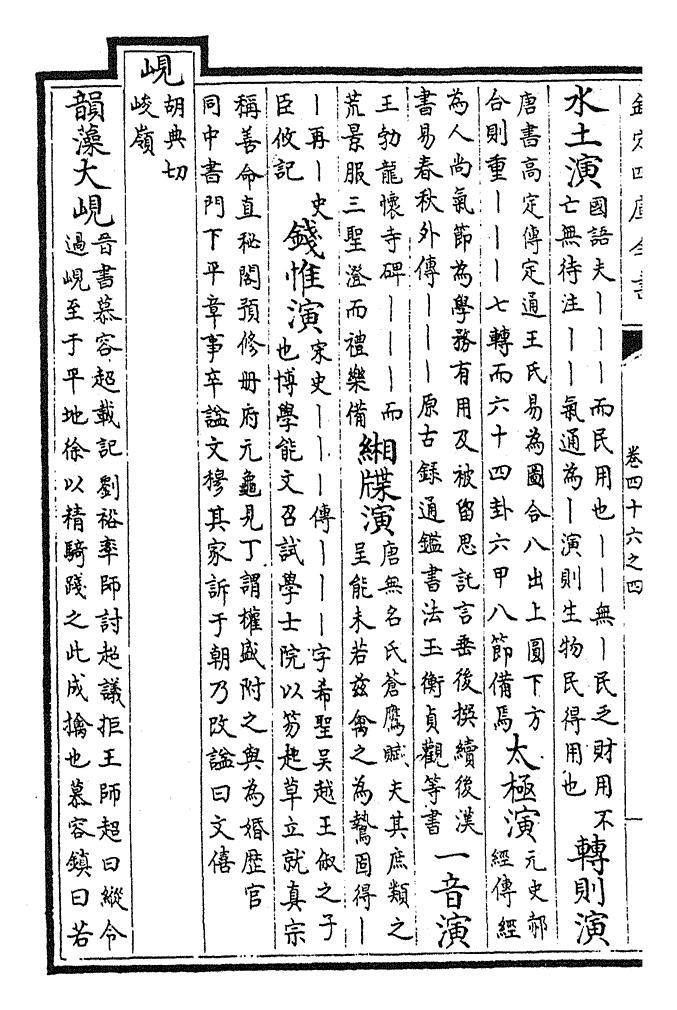 欽定四庫全書 卷四十六之四
水土演
國語夫丨丨丨而民用也丨丨無丨民乏財用不
亡無待注丨丨丨氣通為丨演則生物民得用也
轉則演
唐書高定傳定通王氏易為圖合八出上圓下方
合則重丨丨丨七轉而六十四卦六甲八節備焉
太極演
元史郝
經傳經
為人尚氣節為學務有用及被留思託言垂後撰續後漢
書易春秋外傳丨丨丨原古錄通鑑書法玉衡貞觀等書
一音演
王勃龍懷寺碑丨丨丨而
荒景服三聖澄而禮樂備
緗牒演
唐無名氏蒼鷹賦夫其庶類之
呈能未若茲禽之為鷙固得丨
丨再丨史
臣攸記
錢惟演
宋史丨丨丨傳丨丨丨字希聖吳越王俶之子
也博學能文召試學士院以笏起草立就真宗
稱善命直秘閣預修册府元龜見丁謂權盛附之與為婚歷官
同中書門下平章事卒謚文穆其家訴于朝乃改謚曰文僖
峴
胡典切
峻嶺
韻藻大峴
晉書慕容超載記劉裕率師討超議拒王師超曰縱令
過峴至于平地徐以精騎踐之此成擒也慕容鎮曰若